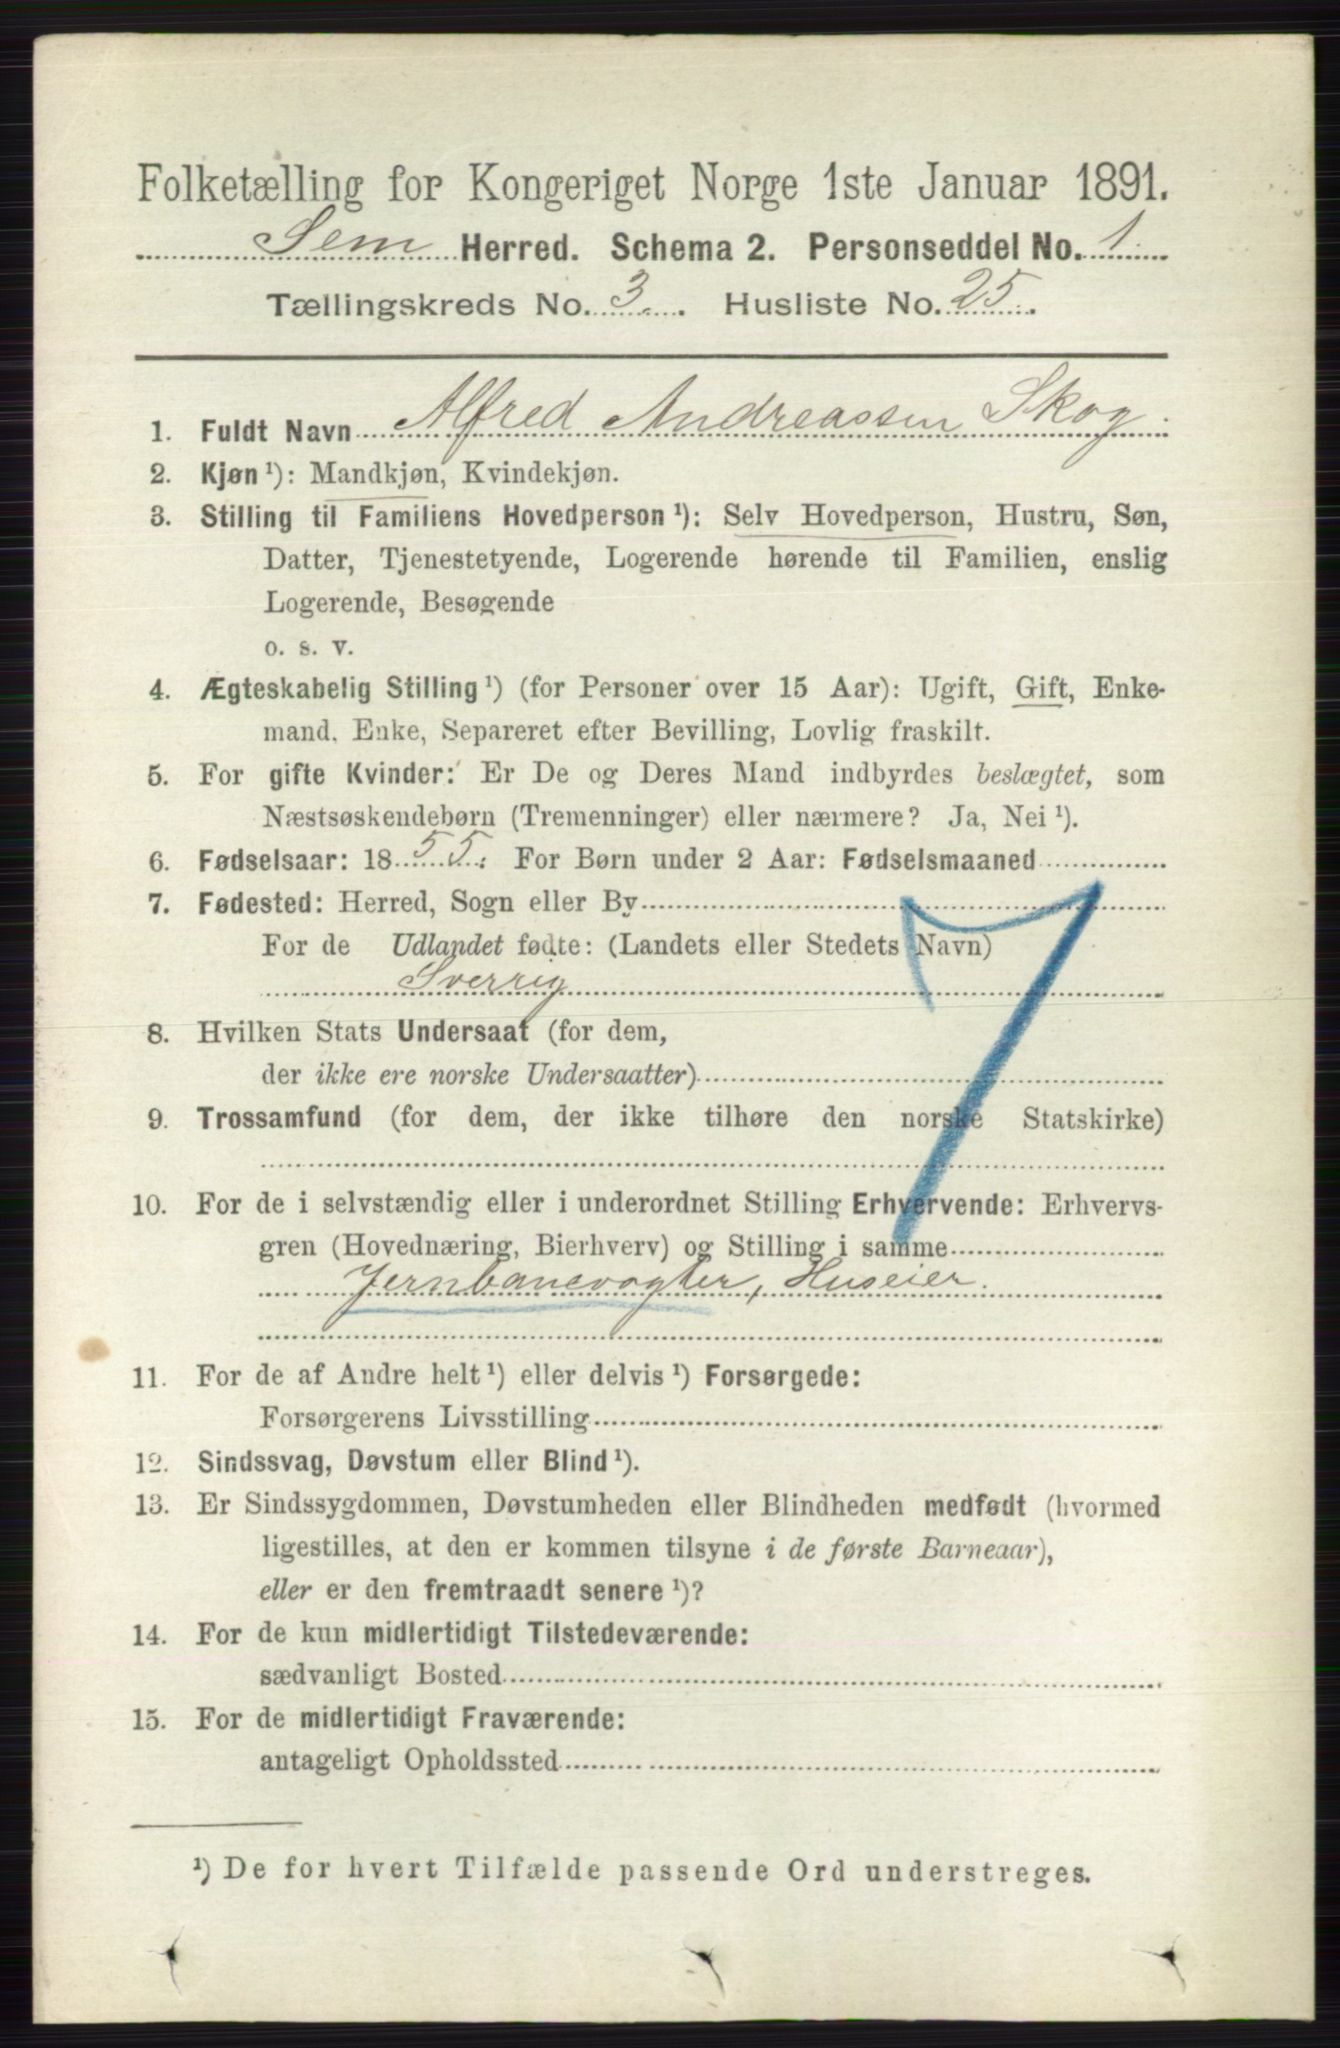 Folketælling for Kongeriget Norge 1ste Januar 1891.
Sem Herred. Schema 2. Personseddel No. 1.
Tællingskreds No. 3. Husliste No. 25.
1. Fuldt Navn Alfred Andreassen Skog.
2. Kjøn ¹): Mandkjøn, Kvindekjøn.
3. Stilling til Familiens Hovedperson ¹): Selv Hovedperson, Hustru, Søn,
Datter, Tjenestetyende, Logerende hørende til Familien, enslig
Logerende, Besøgende
o. s. v.
4. Ægteskabelig Stilling ¹) (for Personer over 15 Aar): Ugift, Gift, Enke-
mand, Enke, Separeret efter Bevilling, Lovlig fraskilt.
5. For gifte Kvinder: Er De og Deres Mand indbyrdes beslægtet, som
Næstsøskendebørn (Tremenninger) eller nærmere? Ja, Nei ¹).
6. Fødselsaar: 1855. For Børn under 2 Aar: Fødselsmaaned
7. Fødested: Herred, Sogn eller By
For de Udlandet fødte: (Landets eller Stedets Navn)
Sverrig
7
8. Hvilken Stats Undersaat (for dem,
der ikke ere norske Undersaatter)
9. Trossamfund (for dem, der ikke tilhøre den norske Statskirke)
10. For de i selvstændig eller i underordnet Stilling Erhvervende: Erhvervs-
gren (Hovednæring, Bierhverv) og Stilling i samme
Jernbanevogter, Huseier.
11. For de af Andre helt ¹) eller delvis ¹) Forsørgede:
Forsørgerens Livsstilling
12. Sindssvag, Døvstum eller Blind ¹).
13. Er Sindssygdommen, Døvstumheden eller Blindheden medfødt (hvormed
ligestilles, at den er kommen tilsyne i de første Barneaar),
eller er den fremtraadt senere ¹)?
14. For de kun midlertidigt Tilstedeværende:
sædvanligt Bosted
15. For de midlertidigt Fraværende:
antageligt Opholdssted
¹) De for hvert Tilfælde passende Ord understreges.